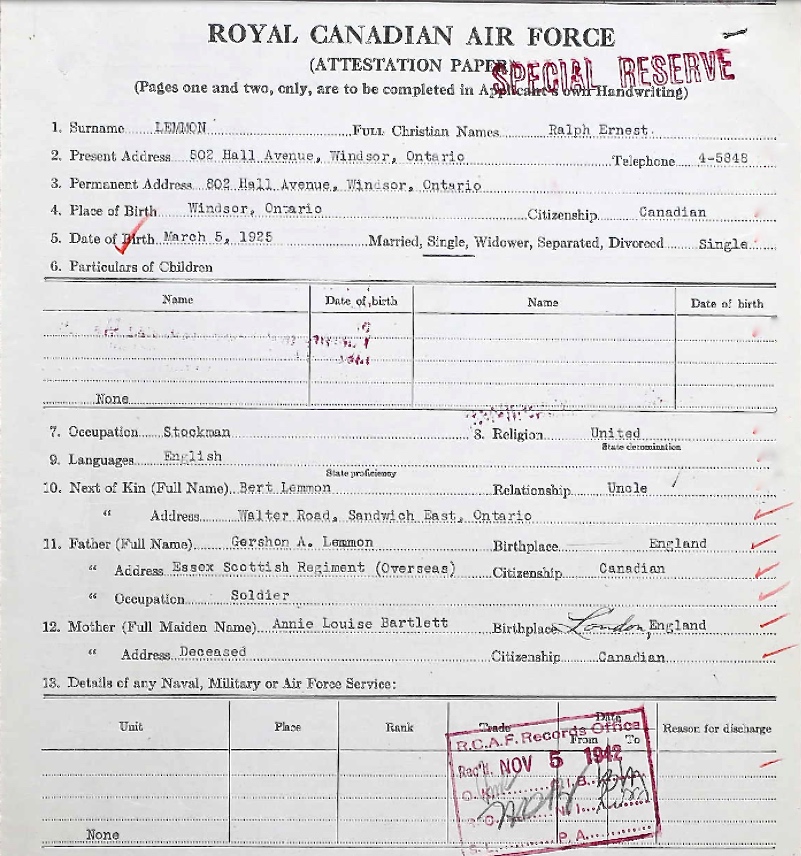 ROYAL CANADIAN AIR FORCE
(ATTESTATION PAPER)
SPECIAL RESERVE
(Pages one and two, only, are to be completed in Applicant's own Handwriting)
1. Surname LEMMON FULL Christian Names Ralph Ernest.
2. Present Address 802 Hall Avenue, Windsor, Ontario Telephone 4-5848
3. Permanent Address 802 Hall Avenue, Windsor, Ontario
4. Place of Birth Windsor, Ontario Citizenship Canadian
5. Date of Birth March 5, 1925 Married, Single, Widower, Separated, Divorced Single
6. Particulars of Children
Name Date of birth Name Date of birth
None
7. Occupation Stockman 8. Religion United
State denomination
9. Languages English
State proficiency
10. Next of Kin (Full Name) Bert Lemmon Relationship Uncle
" Address Walter Road, Sandwich East, Ontario
11. Father (Full Name) Gershon A. Lemmon Birthplace England
" Address Essex Scottish Regiment (Overseas) Citizenship Canadian
" Occupation Soldier
12. Mother (Full Maiden Name) Annie Louise Bartlett Birthplace London, England
" Address Deceased Citizenship Canadian
13. Details of any Naval, Military or Air Force Service:
Unit Place Rank Trade Date From To Reason for discharge
R.C.A.F. Records Office
Rec'd. NOV 5 1942
P. A.
None